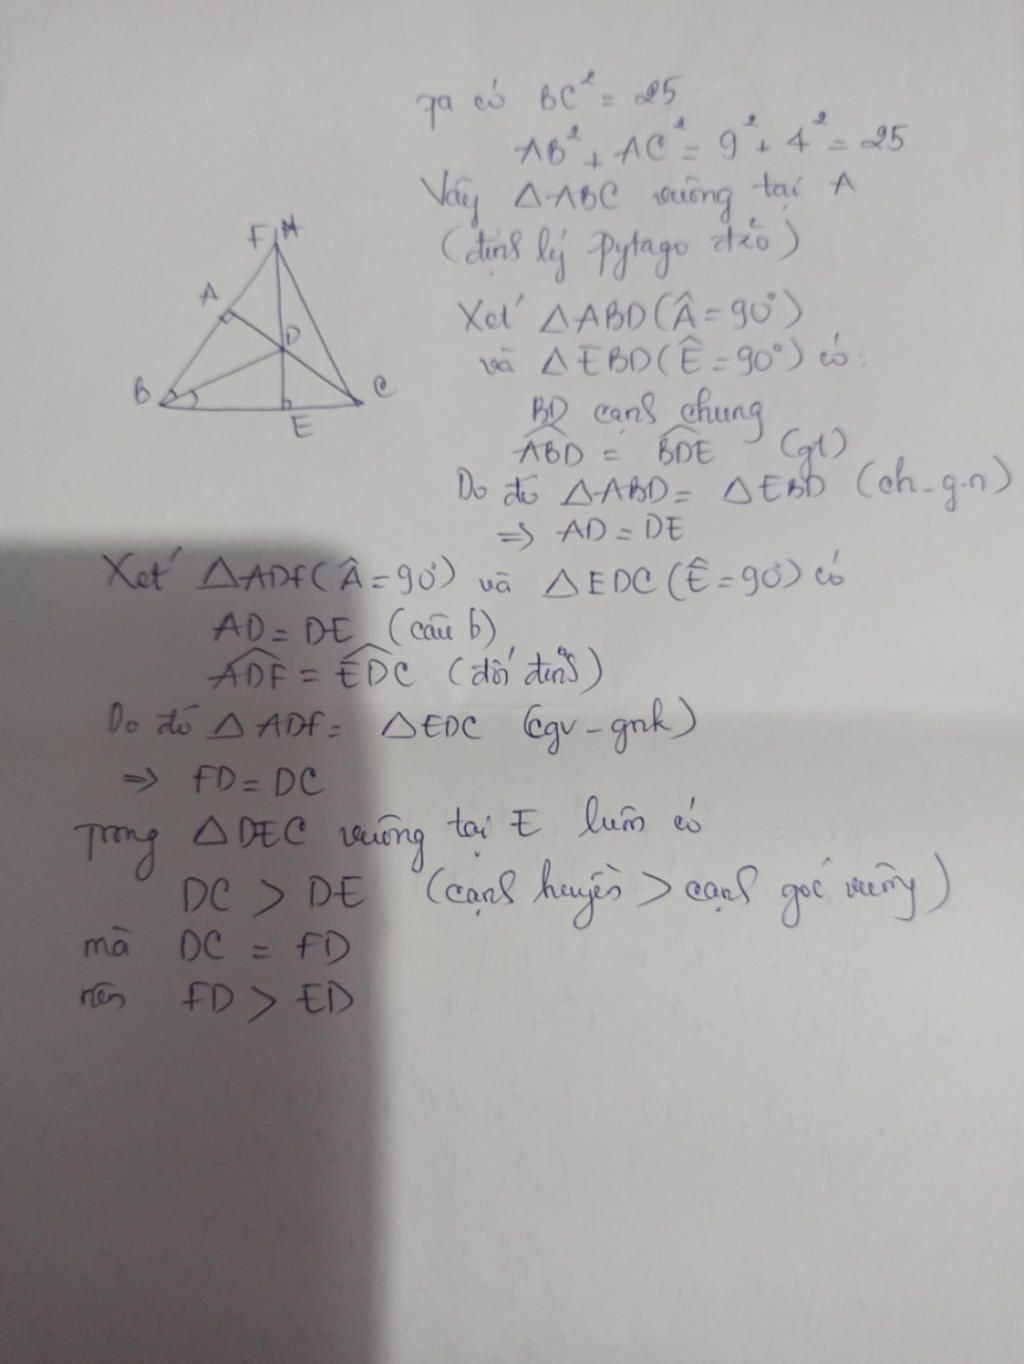 Ta có BC² = 25
AB² + AC² = 9² + 4² = 25
Vậy △ABC vuông tại A
(định lý Pytago đảo)
F H
A
D
B
C
E
Xét △ABD (Â = 90°)
và △EBD (Ê = 90°) có:
BD cạnh chung
ABD̂ = BDÊ (gt)
Do đó △ABD = △EBD (ch-g.n)
=> AD = DE
Xét △ADF (Â = 90°) và △EDC (Ê = 90°) có
AD = DE (câu b)
ADF̂ = EDĈ (đối đỉnh)
Do đó △ADF = △EDC (cgv - gnk)
=> FD = DC
Trong △DEC vuông tại E luôn có
DC > DE (cạnh huyền > cạnh góc vuông)
mà DC = FD
nên FD > ED